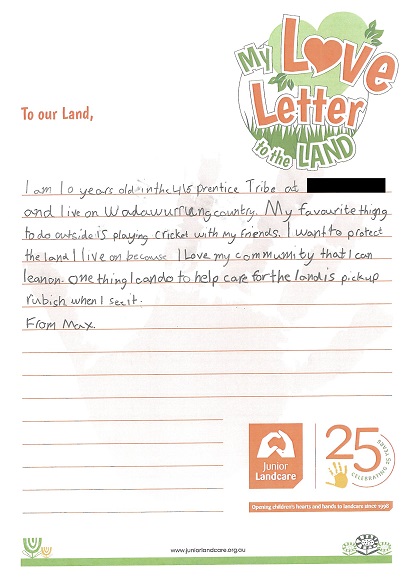 My Love
Letter
to the LAND
To our Land,
I am 10 years old inthe 4/5 prentice Tribe at
and live on Wadawurrung country. My favourite thigng
to do outside is playing cricket with my friends. I want to protect
the land I live on because I Love my community that I can
leanon. one thing I can do to help care for the land is pick up
rubich when I see it.
From Max.
Junior
Landcare
25 YEARS
CELEBRATING
Opening children's hearts and hands to landcare since 1998
www.juniorlandcare.org.au